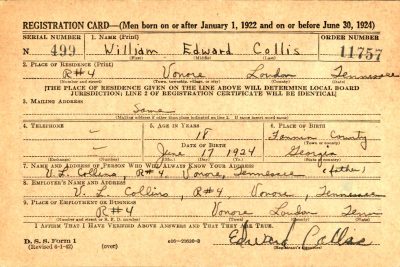 REGISTRATION CARD—(Men born on or after January 1, 1922 and on or before June 30, 1924)
SERIAL NUMBER 1. NAME (Print) ORDER NUMBER
N 499 William Edward Collis 11757
(First) (Middle) (Last)
2. PLACE OF RESIDENCE (Print)
R#4 Vonore Loudon Tennessee
(Number and street) (Town, township, village, or city) (County) (State)
[THE PLACE OF RESIDENCE GIVEN ON THE LINE ABOVE WILL DETERMINE LOCAL BOARD
JURISDICTION; LINE 2 OF REGISTRATION CERTIFICATE WILL BE IDENTICAL]
3. MAILING ADDRESS
Same
(Mailing address if other than place indicated on line 2. If same insert word same)
4. TELEPHONE 5. AGE IN YEARS 6. PLACE OF BIRTH
— 18 Fannin County
DATE OF BIRTH (Town or county)
— June 17 1924 Georgia
(Exchange) (Number) (Mo.) (Day) (Yr.) (State or country)
7. NAME AND ADDRESS OF PERSON WHO WILL ALWAYS KNOW YOUR ADDRESS
V. L. Collins, R#4, Vonore, Tennessee (father)
8. EMPLOYER'S NAME AND ADDRESS
V. L. Collins, R#4, Vonore, Tennessee
9. PLACE OF EMPLOYMENT OR BUSINESS
R#4 Vonore Loudon Tenn
(Number and street or R. F. D. number) (Town) (County) (State)
I AFFIRM THAT I HAVE VERIFIED ABOVE ANSWERS AND THAT THEY ARE TRUE.
D. S. S. Form 1
(Revised 6-1-42) (over) Edward Collis
(Registrant's signature)